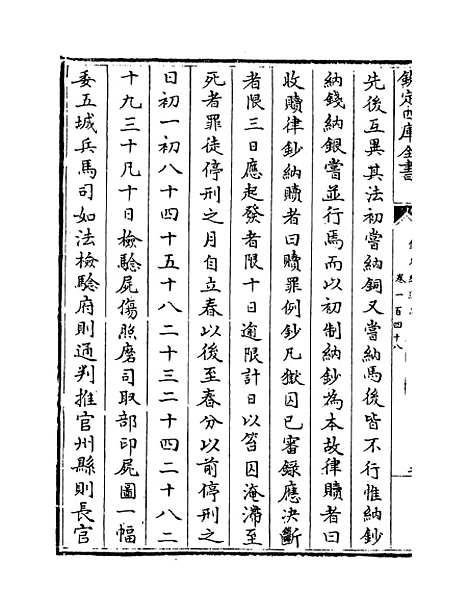 欽定四庫全書
卷一百四十八
先後互異其法初嘗納銅又嘗納馬後皆不行惟納鈔
納錢納銀嘗並行焉而以初制納鈔為本故律贖者曰
收贖律鈔納贖者曰贖罪例鈔凡獄囚已審録應決斷
者限三日應起發者限十日逾限計日以笞囚淹滯至
死者罪徒停刑之月自立春以後至春分以前停刑之
日初一初八十四十五十八二十三二十四二十八二
十九三十凡十日檢驗屍傷照磨司取部印屍圖一幅
委五城兵馬司如法檢驗府則通判推官州縣則長官